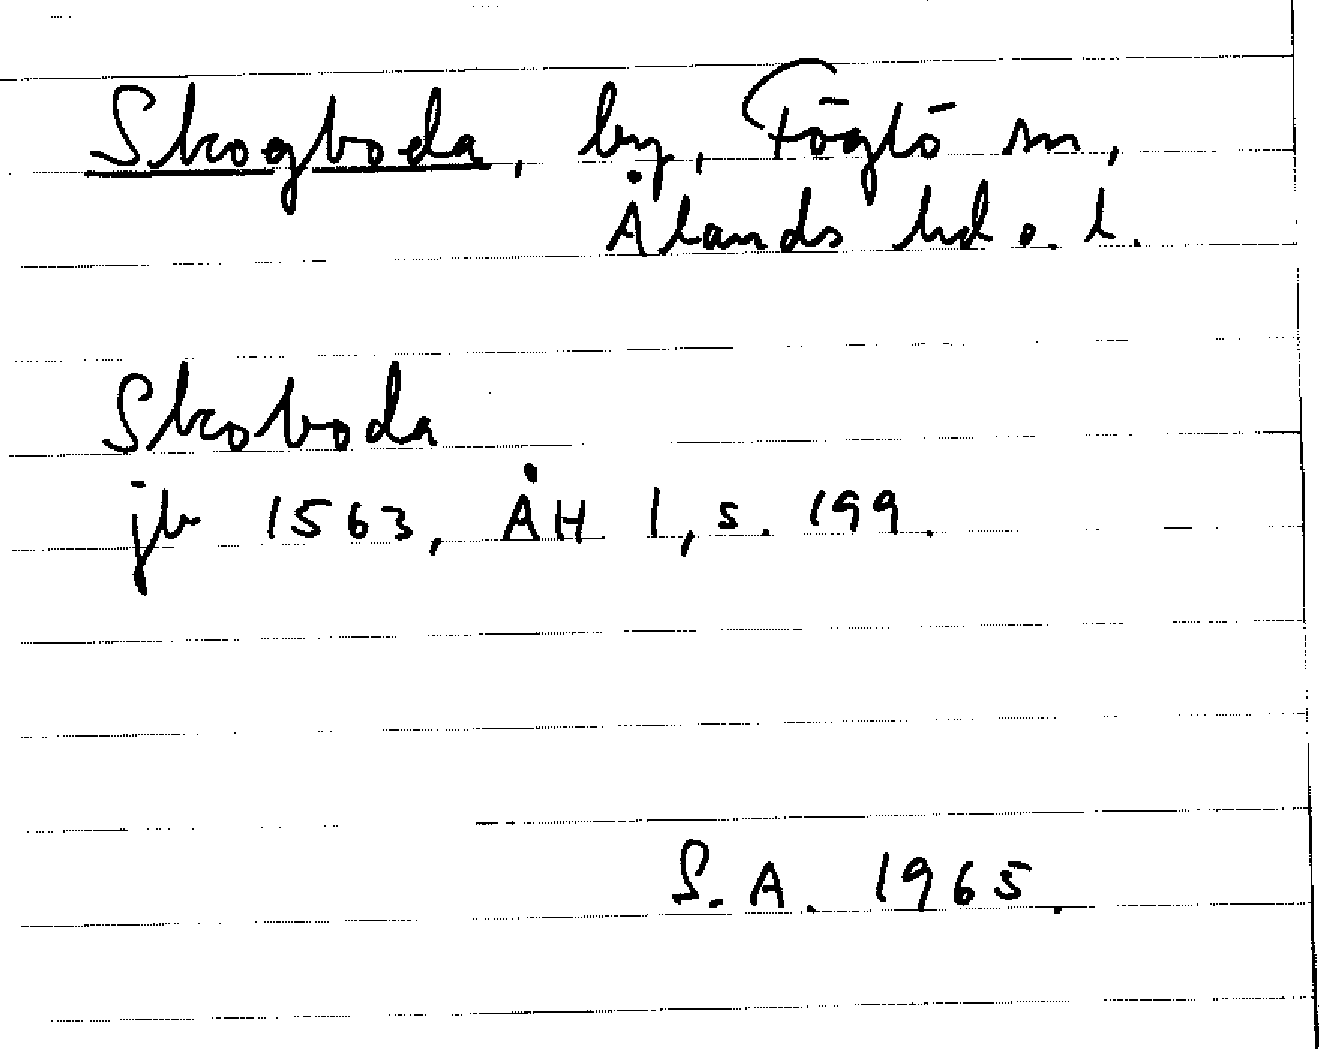 Skogboda, by, Föglö sn,
Ålands hd o. l.
Skoboda
jb 1563, ÅH 1, s. 199.
S.A. 1965.